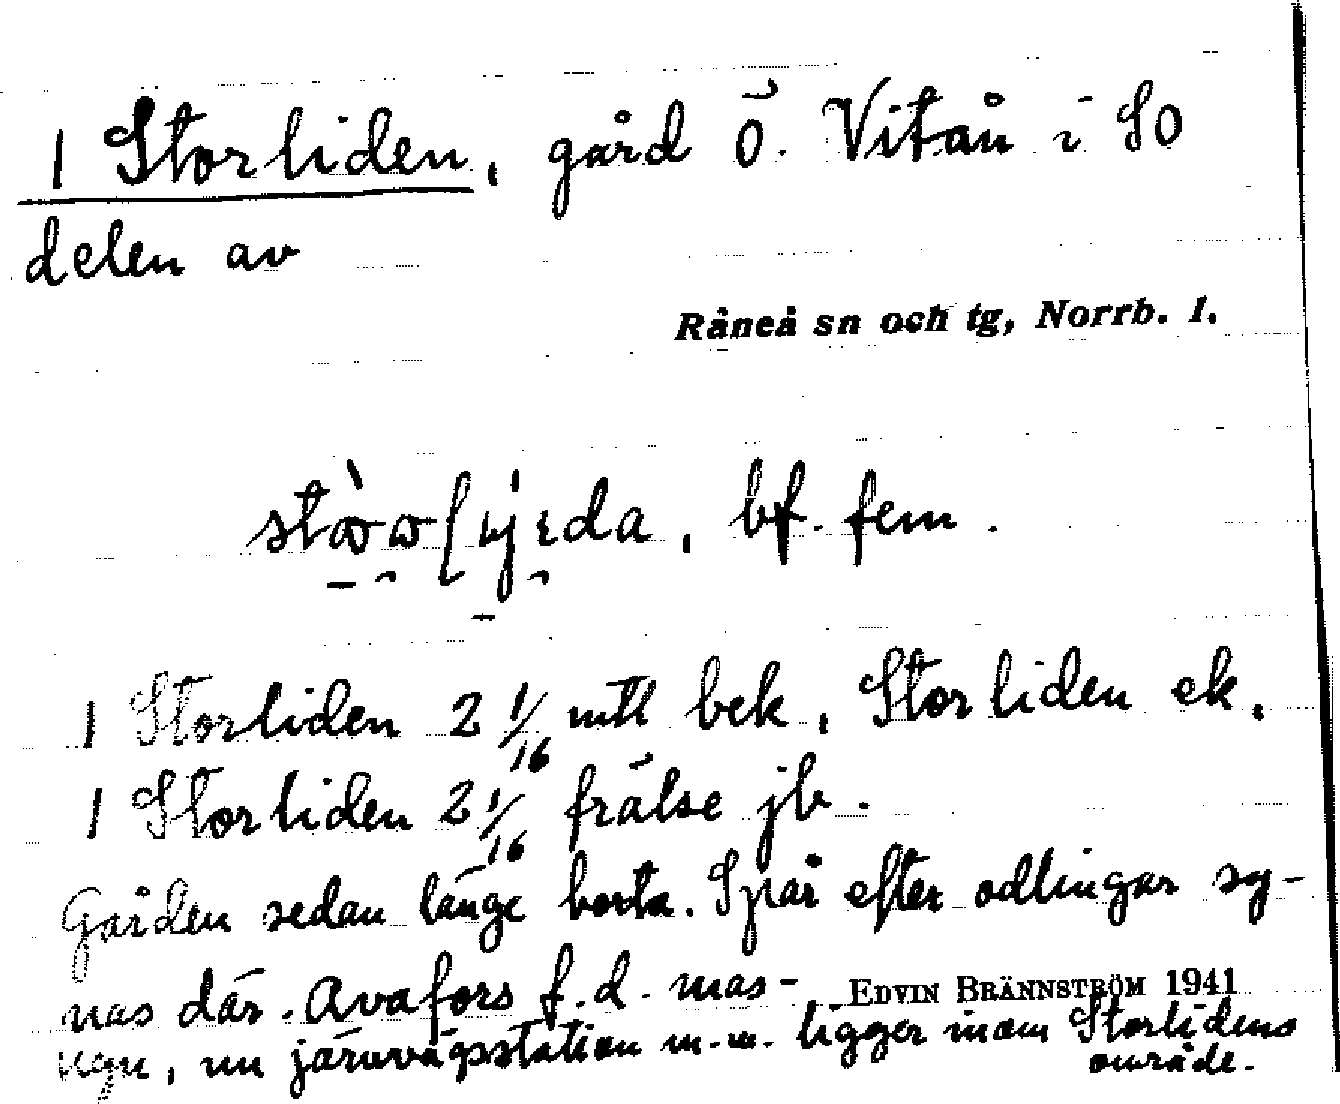 1 Storliden, gård ö. Vitån i SO
delen av
Råneå sn och tg, Norrb. l.
bf. fem.
1 Storliden 2 1/16 mtl bek, Storliden ek,
1 Storliden 2 1/16 frälse jb.
Gården sedan länge borta. Spår efter odlingar sy-
nas där. Avafors f.d. mas-
EDVIN BRÄNNSTRÖM 1941
ugn, nu järnvägsstation m.m. ligger inom Storlidens
område.